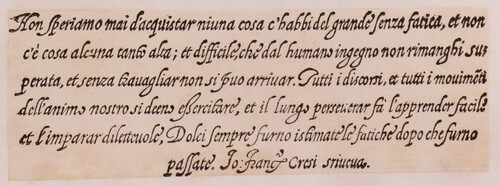 Non speriamo mai d'acquistar niuna cosa c'habbi del grande senza fatica, et non
c'è cosa alcuna tanto alta; et difficile, che dal humano ingegno non rimanghi su=
perata, et senza travagliar non si può arrivar. Tutti i discorsi, et tutti i movimẽti
dell'animo nostro si deono essercitare, et il lungo perseverar fà l'apprender facile
et l'imparar dilettevole, Dolci sempre furno istimate le fatiche dopo che furno
passate. Io: Franc.º Cresi scrivea.